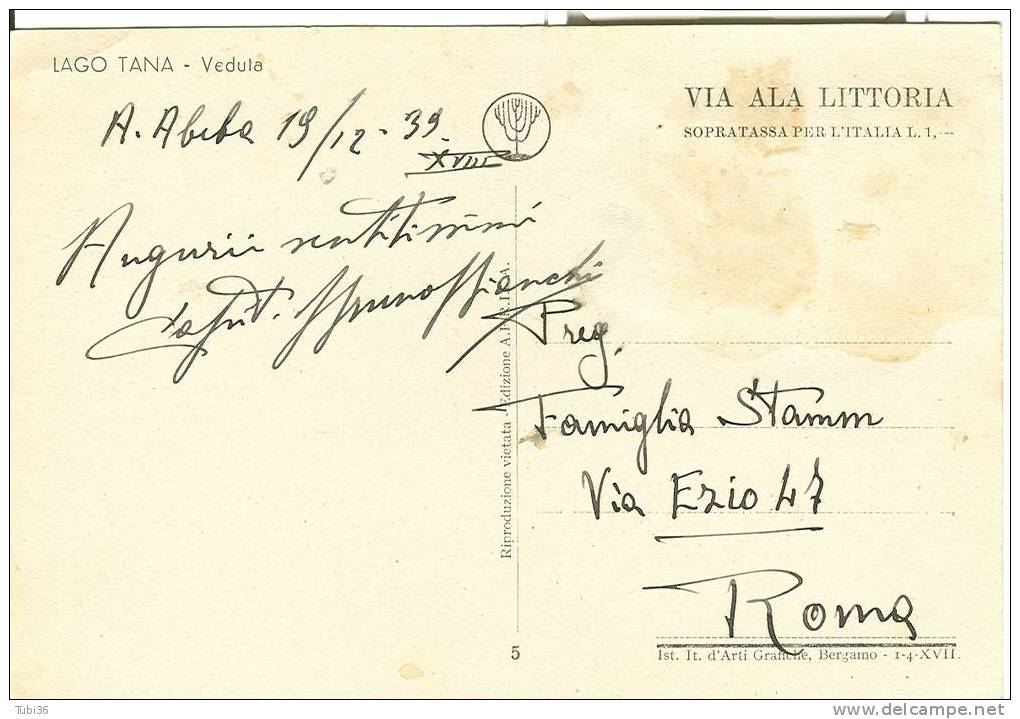 LAGO TANA - Veduta
VIA ALA LITTORIA
SOPRATASSA PER L'ITALIA L. 1,—
A. Abeba 19/12-39.
XVIII
Augurii sentitissimi
Bruno Bianchi
Preg.
Famiglia Stamm
Via Ezio 47
Roma
Riproduzione vietata - Edizione A.
5
Ist. It. d'Arti Grafiche, Bergamo - 1-4-XVII.
Tubi36
delcampe.net